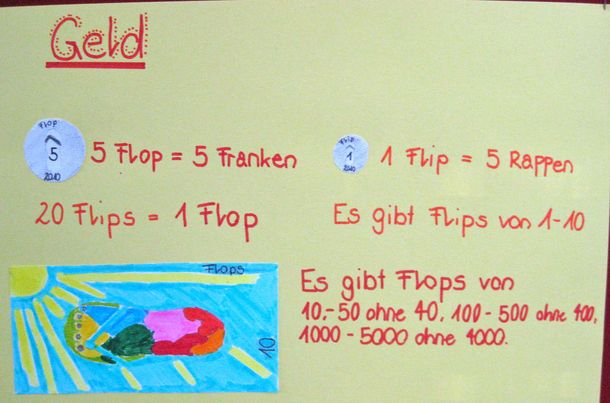 Geld
Flop
5
2010
5 Flop = 5 Franken
Flip
1
2010
1 Flip = 5 Rappen
20 Flips = 1 Flop
Es gibt Flips von 1-10
Flops
10
Es gibt Flops von
10,- 50 ohne 40, 100 - 500 ohne 400,
1000 - 5000 ohne 4000.